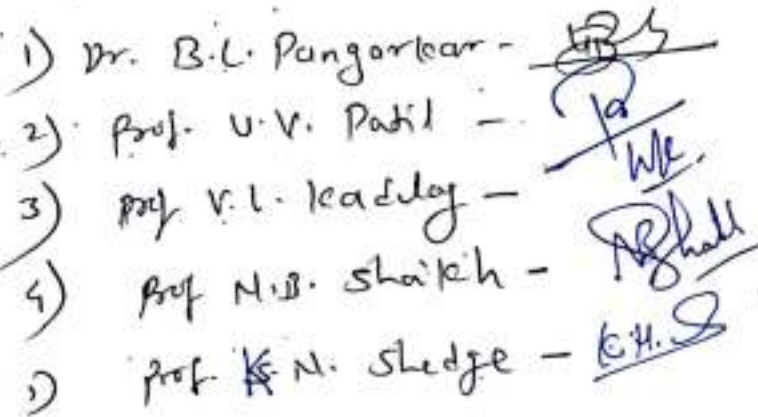 1) Dr. B.L. Pangarkar -
2) Prof. V.V. Patil -
3) Prof V.L. Kadlag -
4) Prof N.B. Shaikh -
5) Prof. K. N. Shedge - K.N.S